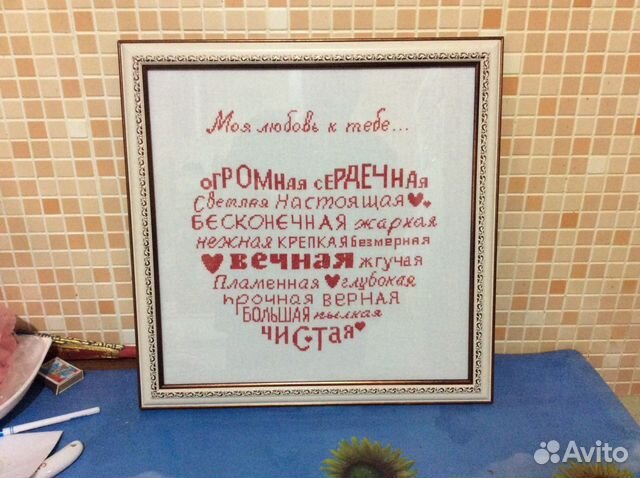 Моя любовь к тебе...
огРОМНая сЕРДЕЧНая
Светлая Настоящая
БЕСКОНЕЧНАЯ жаркая
нежная КРЕПКАЯ Безмерная
вечная жгучая
Пламенная глубокая
прочная ВЕРНАЯ
БОЛЬШАЯ пылкая
чиСТая
Avito